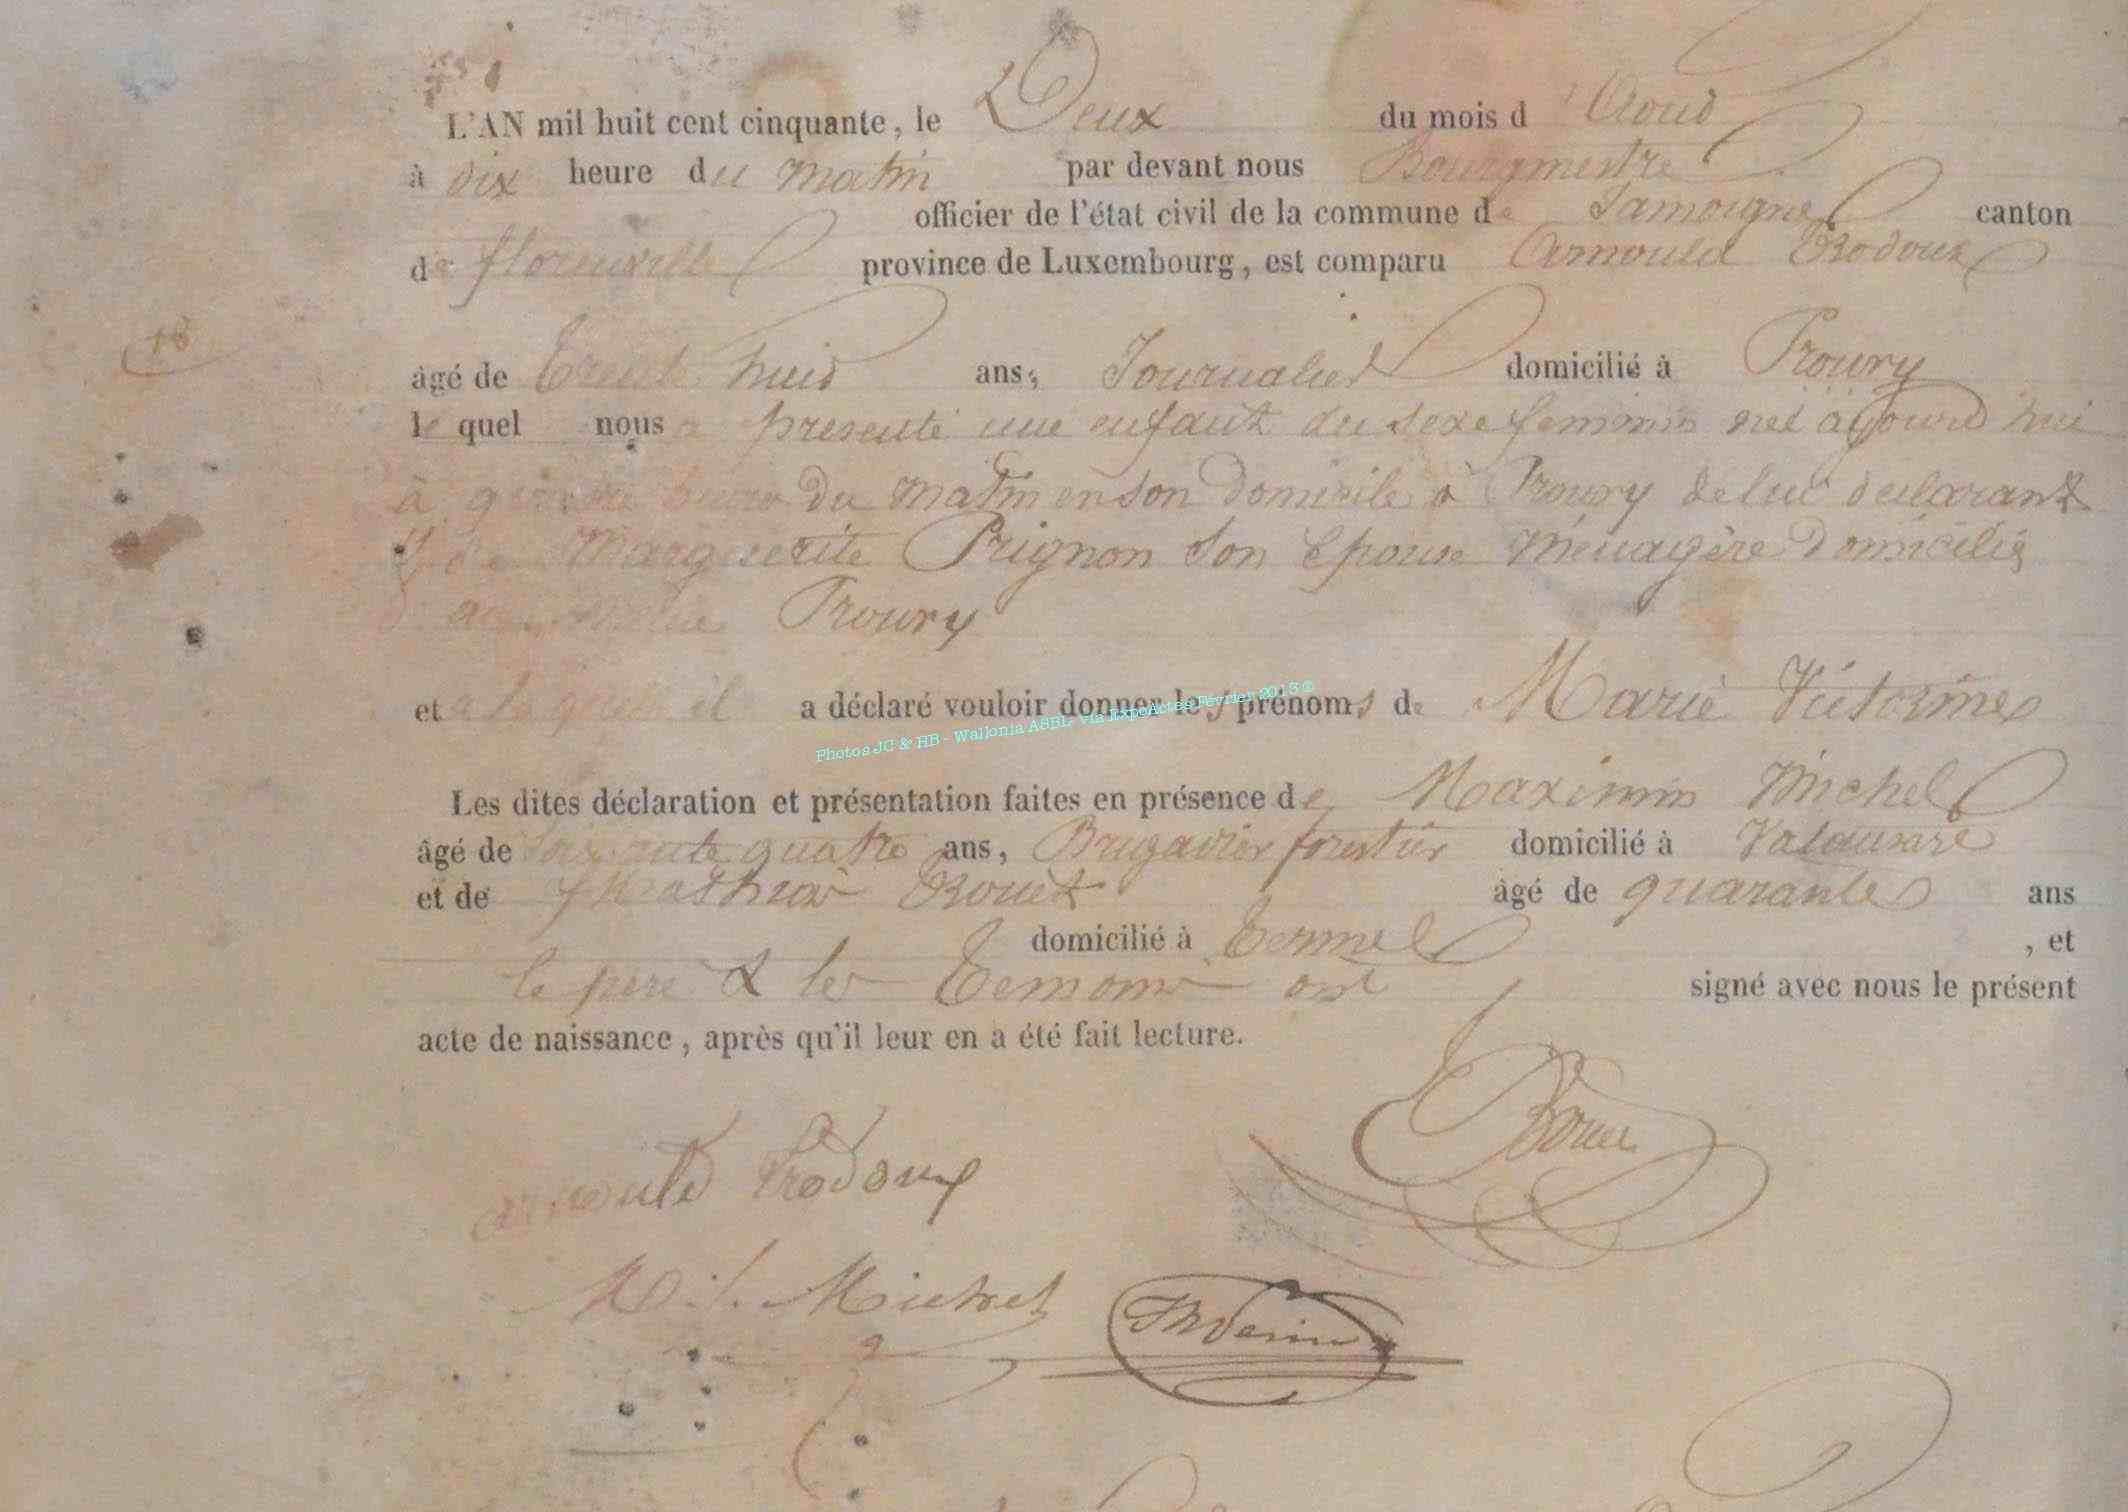 L'AN mil huit cent cinquante, le Deux du mois d'Aoud
à dix heure du matin par devant nous Bourgmestre
officier de l'état civil de la commune de Jamoigne canton
de florenville province de Luxembourg, est comparu Arnould Rodoux
18
âgé de trente huid ans, Journalier domicilié à Prouvy
le quel nous a presenté une enfant du sexe feminin née
à heure du matin en son domicile à Prouvy de lui declarant
& de Marguerite Prignon son Epouse Ménagère Domiciliés
Prouvy
et a déclaré vouloir donner les prénoms de Marie Victorine
Photos JC & HB - Wallonia ASBL via ExpoActes Février 2013 ©
Les dites déclaration et présentation faites en présence de Maximin Michel
âgé de soixante quatre ans, domicilié à
et de Rouet âgé de quarante ans
domicilié à Termes , et
le père & les Temoins ont signé avec nous le présent
acte de naissance, après qu'il leur en a été fait lecture.
Rouet
arnould Rodoux
Michel